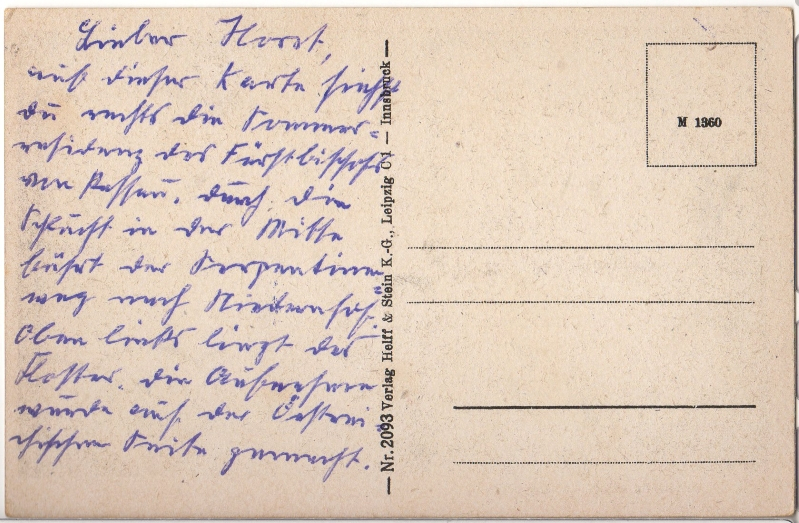 Lieber Horst,
auf dieser Karte siehst
du rechts die Sommer=
residenz des Fürstbischofs
von Passau. Durch die
Schlucht in der Mitte
führt der Serpentinen=
weg nach
Oben links liegt das
Kloster. Die Aufnahme
wurde auf der Östrei=
chischen Seite gemacht.
Nr. 2093 Verlag Helff & Stein K.-G., Leipzig C 1 — Innsbruck
M 1360